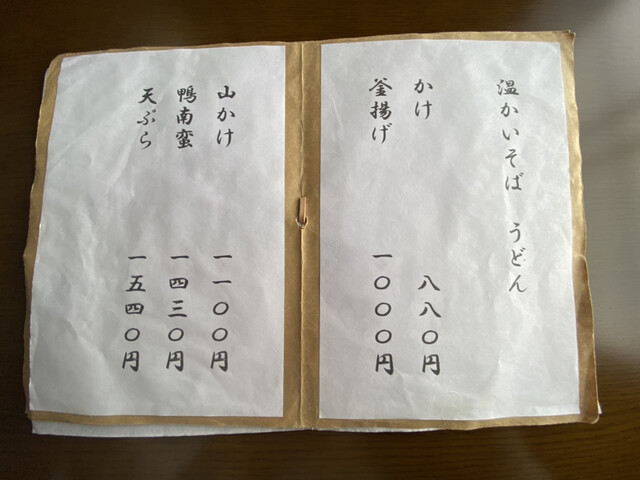 温かいそば うどん
かけ 八八〇円
釜揚げ 一〇〇〇円
山かけ 一一〇〇円
鴨南蛮 一四三〇円
天ぷら 一五四〇円